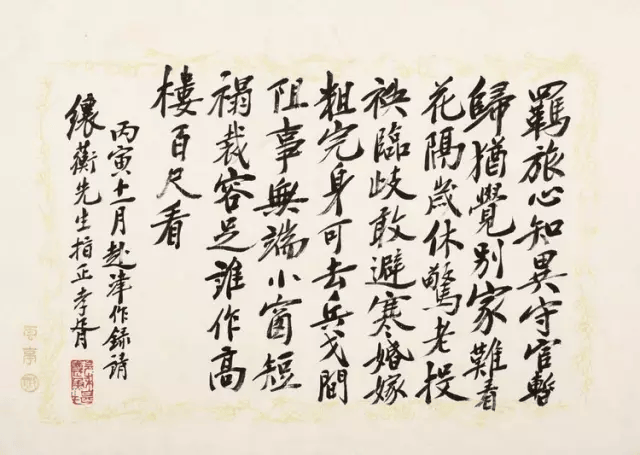 羈旅心知異守官暫
歸猶覺別家難看
花隔歲休驚老投
袂臨歧敢避寒婚嫁
粗完身可去兵戈間
阻事無端小窗短
榻裁容足誰作高
樓百尺看
丙寅十一月赴津作錄請
纕蘅先生指正孝胥